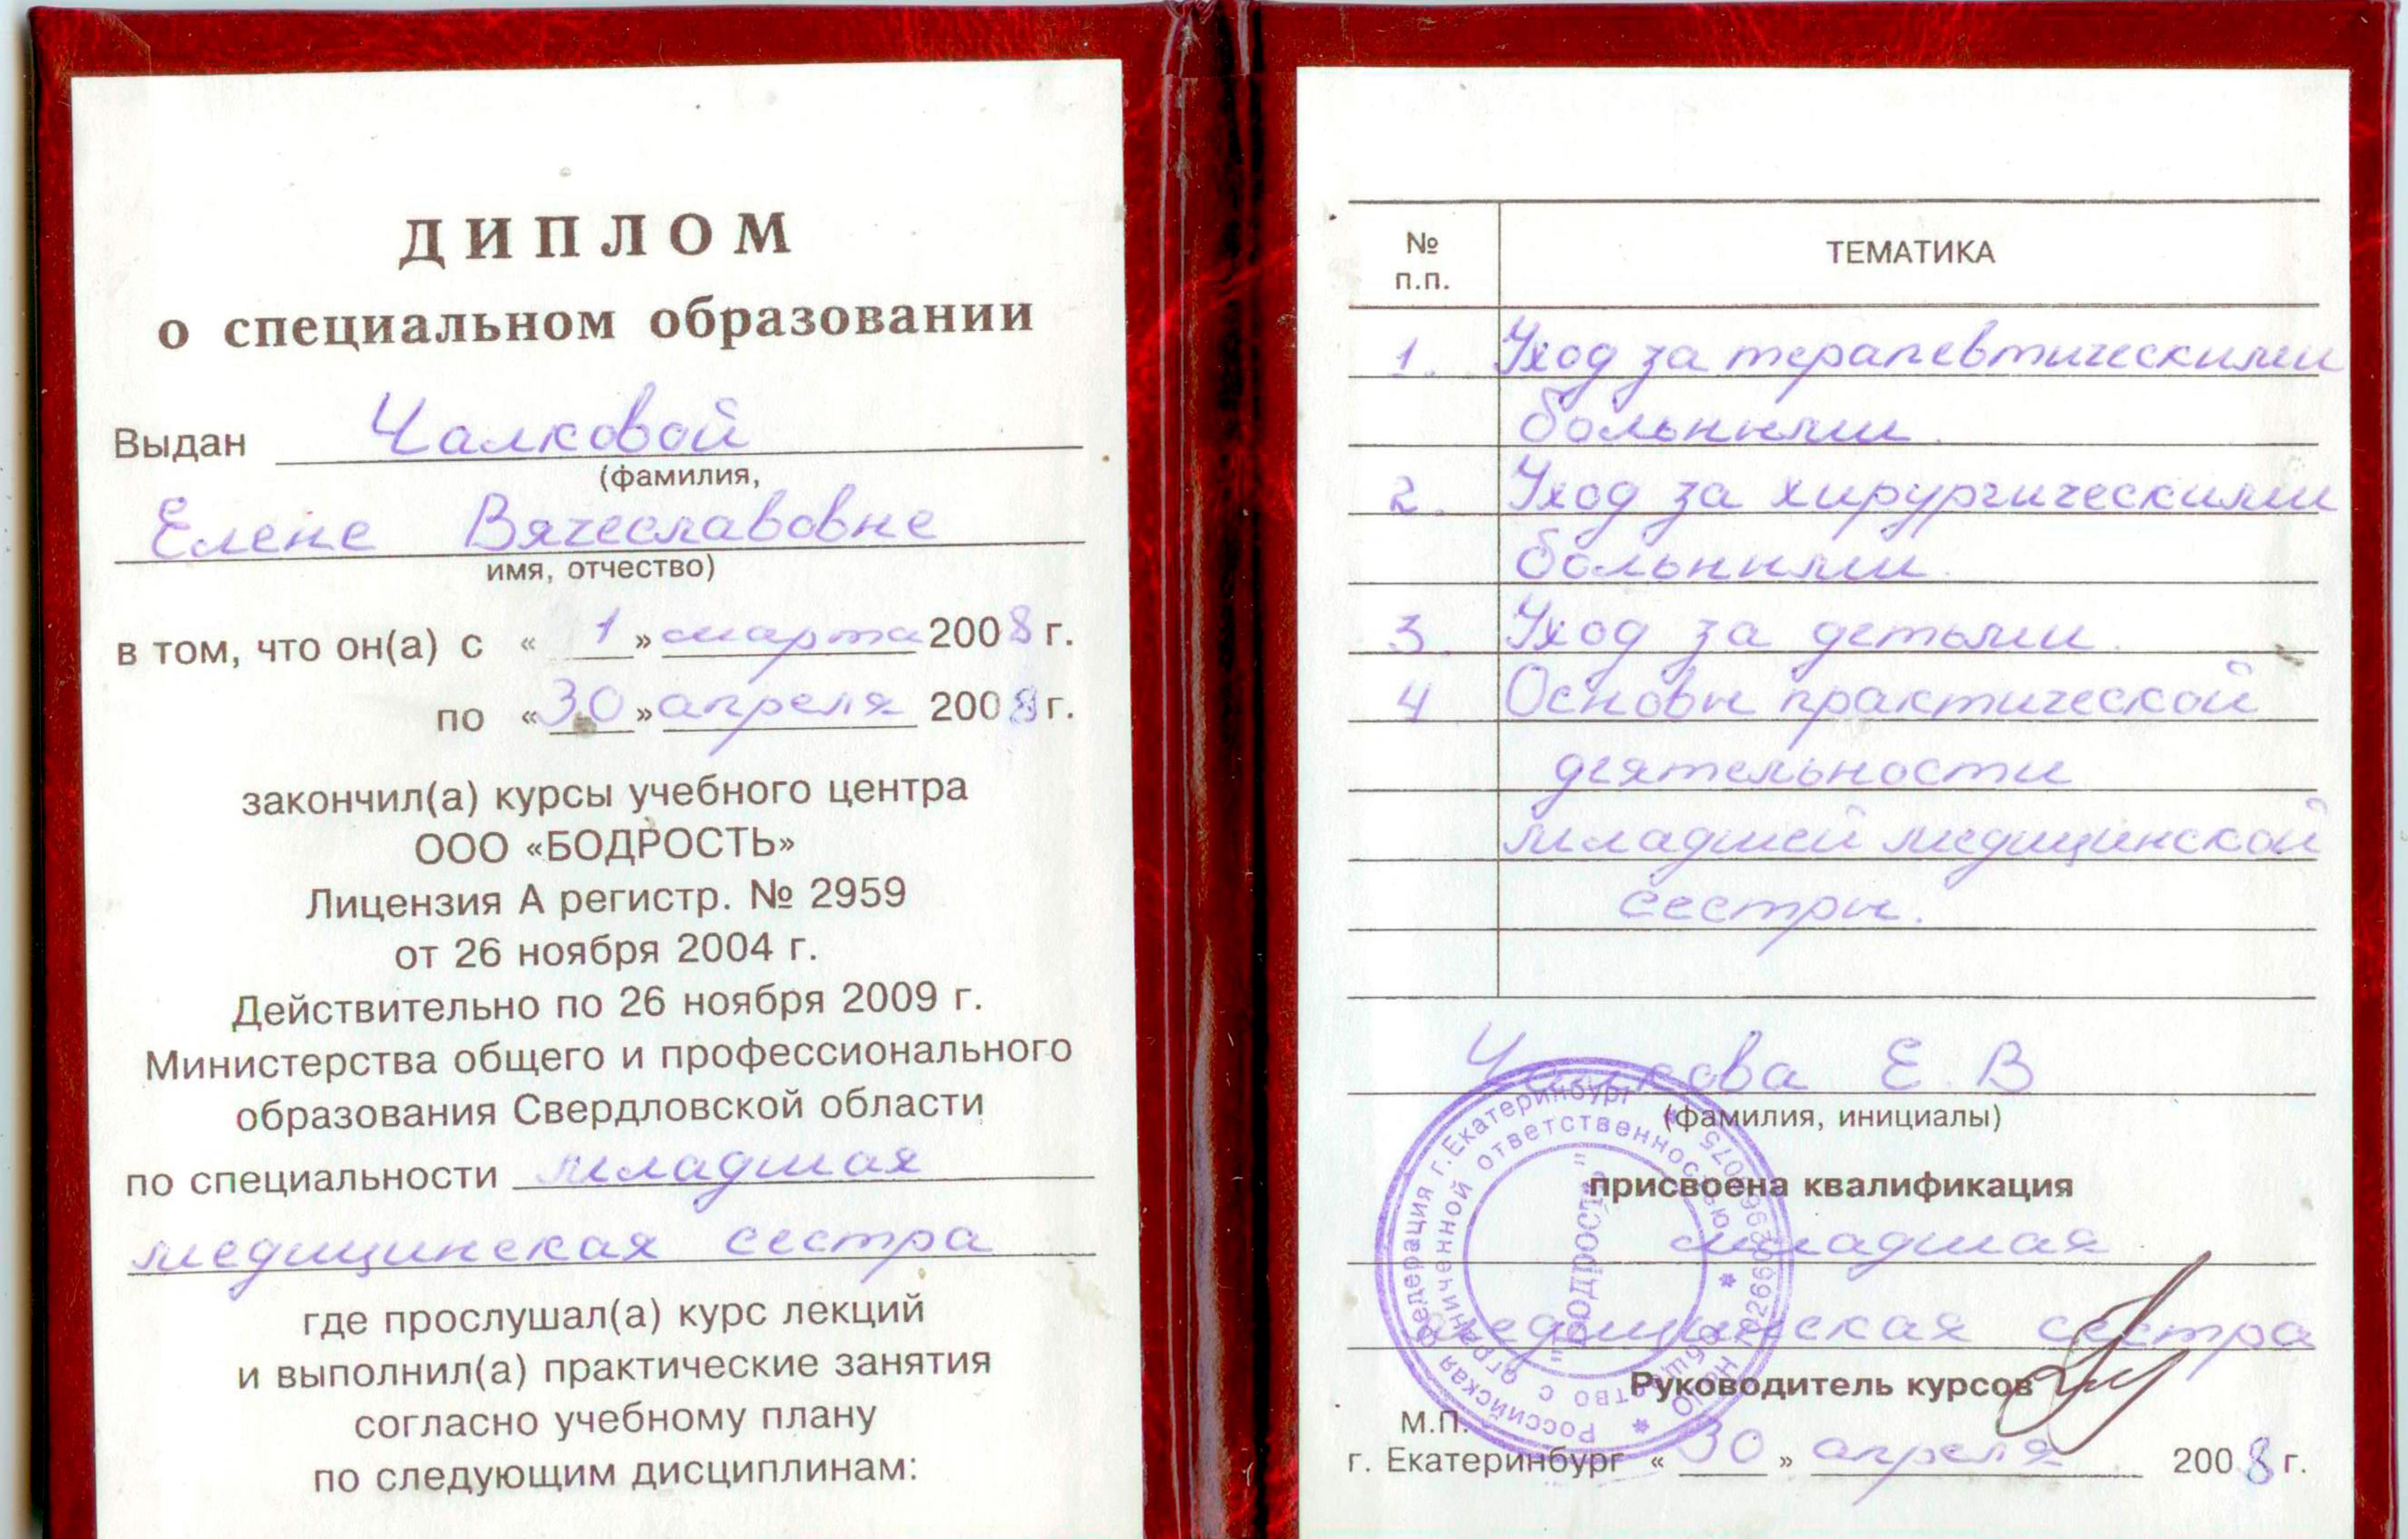 ДИПЛОМ
о специальном образовании
Выдан Чалковой
(фамилия,
Елене Вячеславовне
имя, отчество)
в том, что он(а) с « 1 » марта 2008 г.
по « 30 » апреля 2008 г.
закончил(а) курсы учебного центра
ООО «БОДРОСТЬ»
Лицензия А регистр. № 2959
от 26 ноября 2004 г.
Действительно по 26 ноября 2009 г.
Министерства общего и профессионального
образования Свердловской области
по специальности младшая
медицинская сестра
где прослушал(а) курс лекций
и выполнил(а) практические занятия
согласно учебному плану
по следующим дисциплинам:
№ п.п. ТЕМАТИКА
1. Уход за терапевтическими
больными.
2. Уход за хирургическими
больными.
3. Уход за детьми.
4 Основы практической
деятельности
младшей медицинской
сестры.
Чалкова Е. В
(фамилия, инициалы)
присвоена квалификация
младшая
медицинская сестра
Руководитель курсов
М.П.
г. Екатеринбург « 30 » апреля 2008 г.
Российская Федерация г. Екатеринбург
Общество с ограниченной ответственностью
"Бодрость"